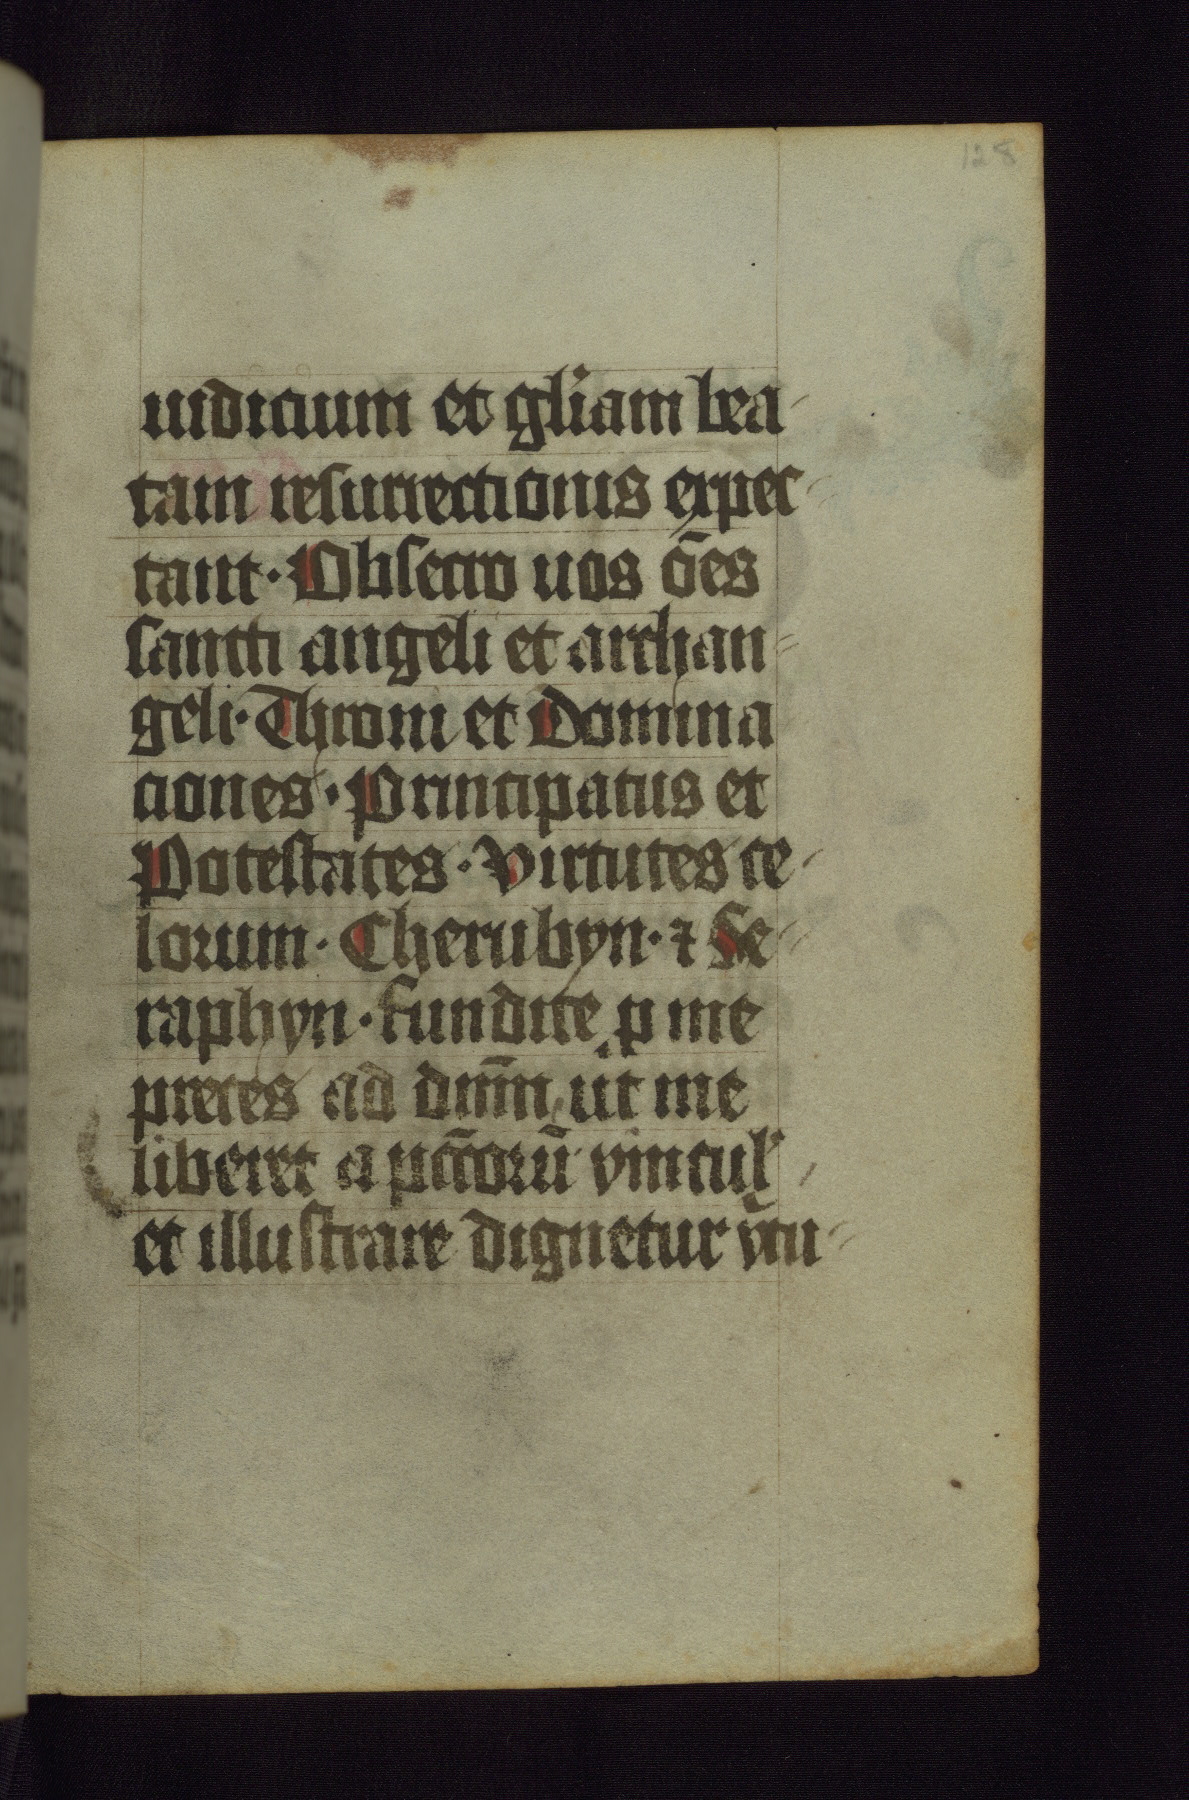 128
iudicium et gl̄iam bea
tam resurrectionis expec
tant · Obsecro uos o̅es
sancti angeli et archan
geli · Throni et Domina
ciones · Principatus et
Potestates · Virtutes ce
lorum · Cherubyn · ⁊ Se
raphyn · fundite p me
preces ad dn̅m ut me
liberet a pcc̅orū vincul'
et illustrare dignetur